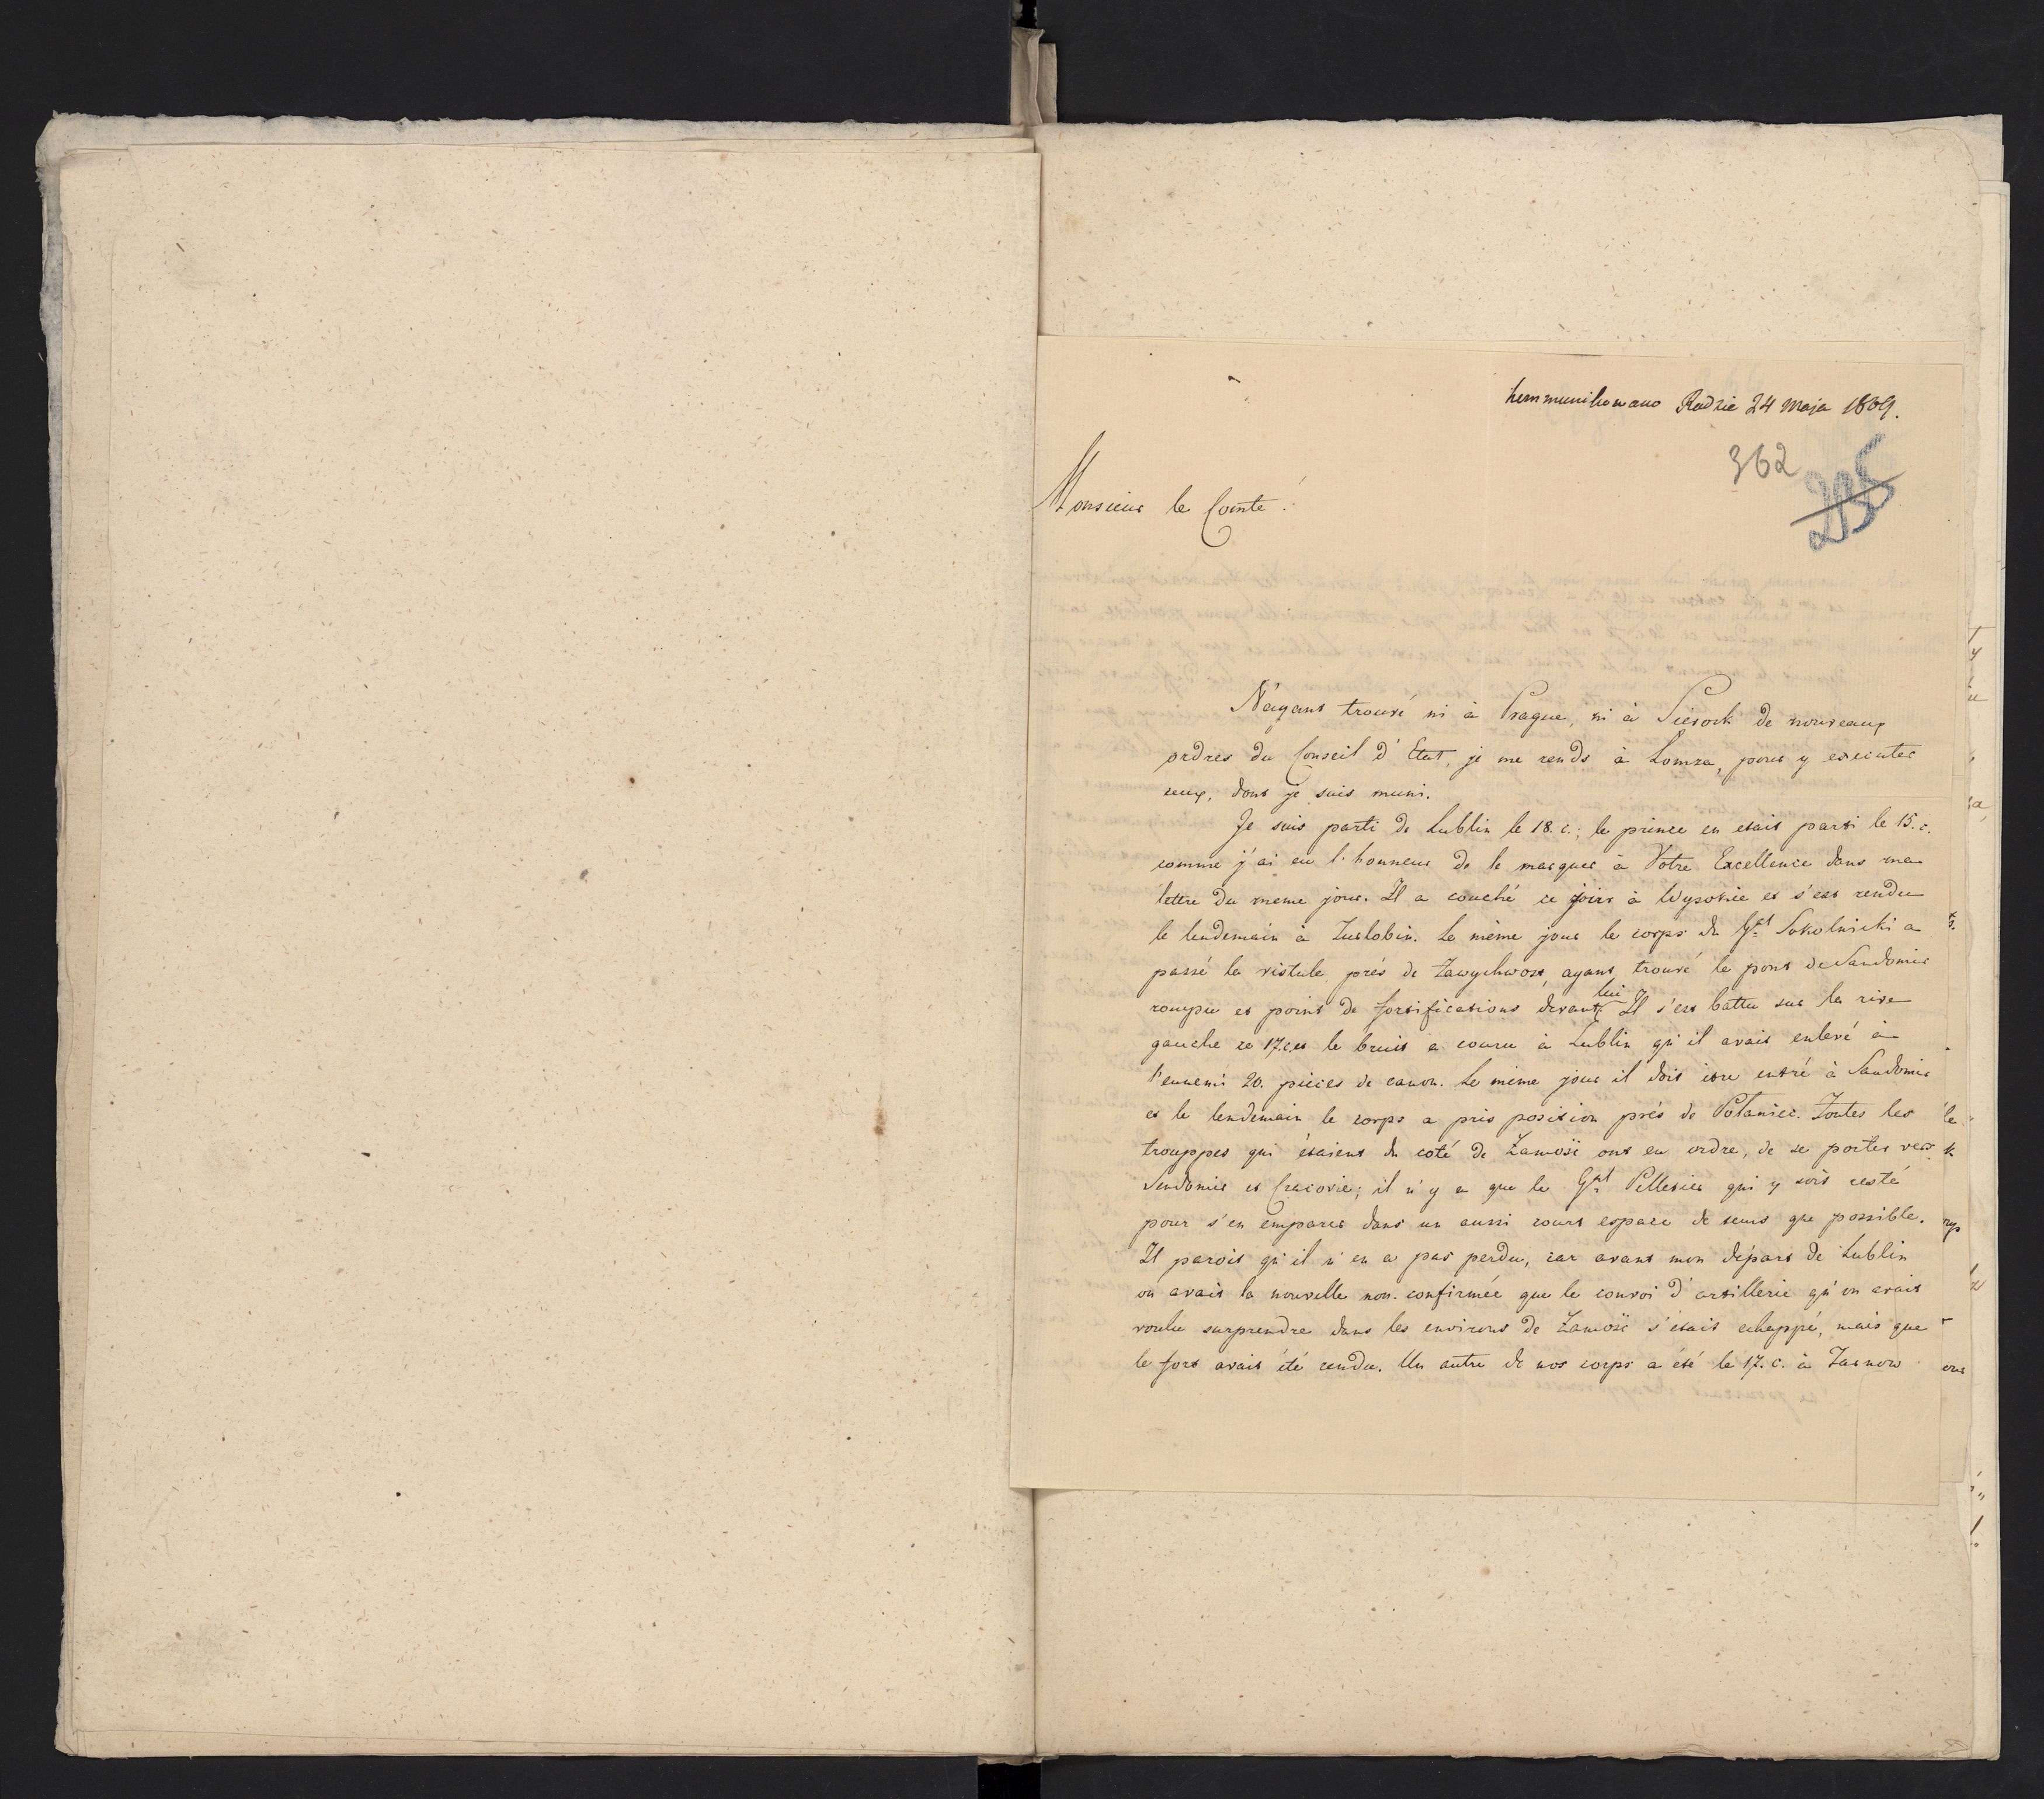 kommunikowano Radzie 24 Maja 1809.
362
Monsieur le Comte!
N'ayant trouvé ni à Prague, ni à Sierock de nouveaux
ordres du Conseil d'Etat, je me rends à Lomza, pour y executer
ceux, dont je suis muni.
Je suis parti de Lublin le 18. c.; le prince en etait parti le 15. c.
comme j'ai eu l'honneur de le marquer à Votre Excellence dans ma
lettre du meme jour. Il a couché ce jour à Wysokie et s'est rendu
le lendemain à Turobin. Le même jour le corps du Gal Sokolnicki a
passé la vistule près de Zawychwost, ayant trouvé le pont de Sandomir
rompu et point de fortifications devant lui. Il s'est battu sur la rive
gauche ce 17. c. et le bruit a couru à Lublin qu'il avait enlevé à
l'ennemi 20. pièces de canon. Le même jour il doit être entré à Sandomir
et le lendemain le corps a pris position près de Polaniec. Toutes les
trouppes qui étaient du coté de Zamość ont eu ordre, de se porter vers
Sendomir et Cracovie; il n'y a que le Gal Pelletier qui y soit resté
pour s'en emparer dans un aussi court espace de tems que possible.
Il paroit qu'il n'en a pas perdu, car avant mon départ de Lublin
on avait la nouvelle non-confirmée que le convoi d'artillerie qu'on avait
voulu surprendre dans les environs de Zamość s'etait echappé, mais que
le fort avait été rendu. Un autre de nos corps a été le 17. c. à Tarnow